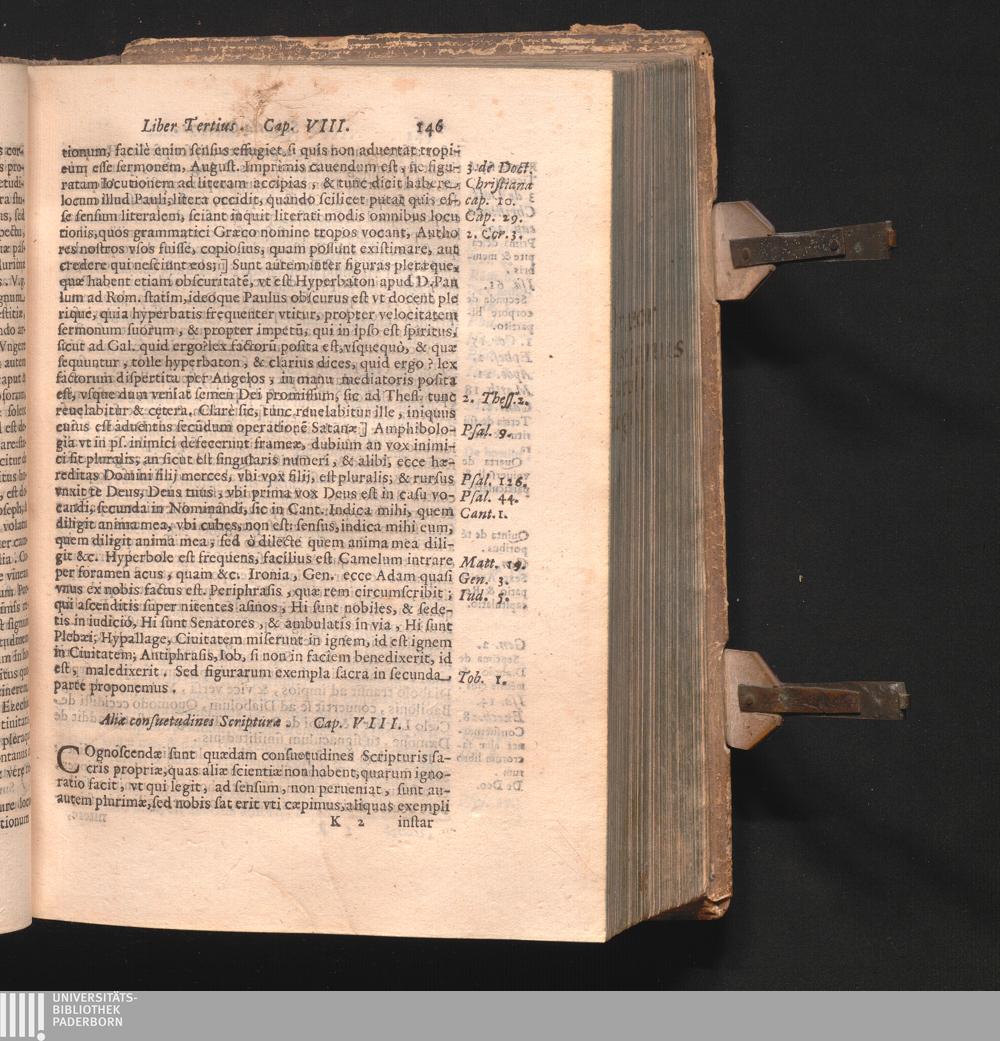 Liber Tertius. Cap. VIII. 146
tionum, facilè enim sensus effugiet, si quis non aduertat tropi-
cum esse sermonem, August. Imprimis cauendum est, ne figu-
ratam locutionem ad literam accipias, & tunc dicit habere
locum illud Pauli, litera occidit, quando scilicet putat quis es-
se sensum literalem, sciant inquit literati modis omnibus locu
tionis, quos grammatici Græco nomine tropos vocant, Autho
res nostros vsos fuisse, copiosius, quam possunt existimare, aut
credere qui nesciunt eos;] Sunt autem inter figuras pleræque,
quæ habent etiam obscuritatẽ, vt est Hyperbaton apud D. Pau
lum ad Rom. statim, ideoque Paulus obscurus est vt docent ple
rique, quia hyperbatis frequenter vtitur, propter velocitatem
sermonum suorum, & propter impetũ, qui in ipso est spiritus,
sicut ad Gal. quid ergo? lex factorũ posita est, vsquequò, & quæ
sequuntur, tolle hyperbaton, & clarius dices, quid ergo? lex
factorum dispertita per Angelos, in manu mediatoris posita
est, vsque dum veniat semen Dei promissum, sic ad Thess. tunc
reuelabitur & cętera. Clarè sic, tunc reuelabitur ille, iniquus
cuius est aduentus secũdum operationẽ Satanæ] Amphibolo-
gia vt in ps. inimici defecerunt frameæ, dubium an vox inimi-
ci sit pluralis, an sicut est singularis numeri, & alibi, ecce hæ-
reditas Domini filij merces, vbi vox filij, est pluralis; & rursus
vnxit te Deus, Deus tuus, vbi prima vox Deus est in casu vo-
candi, secunda in Nominandi, sic in Cant. Indica mihi, quem
diligit anima mea, vbi cubes, non est: sensus, indica mihi eum,
quem diligit anima mea, sed ò dilecte quem anima mea dili-
git &c. Hyperbole est frequens, facilius est Camelum intrare
per foramen acus, quam &c. Ironia, Gen. ecce Adam quasi
vnus ex nobis factus est. Periphrasis, quæ rem circumscribit;
qui ascenditis super nitentes asinos, Hi sunt nobiles, & sede-
tis in iudicio, Hi sunt Senatores, & ambulatis in via, Hi sunt
Plebæi; Hypallage, Ciuitatem miserunt in ignem, id est ignem
in Ciuitatem; Antiphrasis, Iob, si non in faciem benedixerit, id
est, maledixerit. Sed figurarum exempla sacra in secunda
parte proponemus.
3 de Doct.
Christiana
cap. 10.
Cap. 29.
2. Cor. 3.
2. Thess. 2.
Psal. 9.
Psal. 126.
Psal. 44.
Cant. 1.
Matt. 19.
Gen. 3.
Iud. 5.
Tob. 1.
Aliæ consuetudines Scripturæ. Cap. VIII.
COgnoscendæ sunt quædam consuetudines Scripturis sa-
cris propriæ, quas aliæ scientiæ non habent, quarum igno-
ratio facit, vt qui legit, ad sensum, non perueniat, sunt au-
autem plurimæ, sed nobis sat erit vti cœpimus, aliquas exempli
K 2 instar
UNIVERSITÄTS-
BIBLIOTHEK
PADERBORN